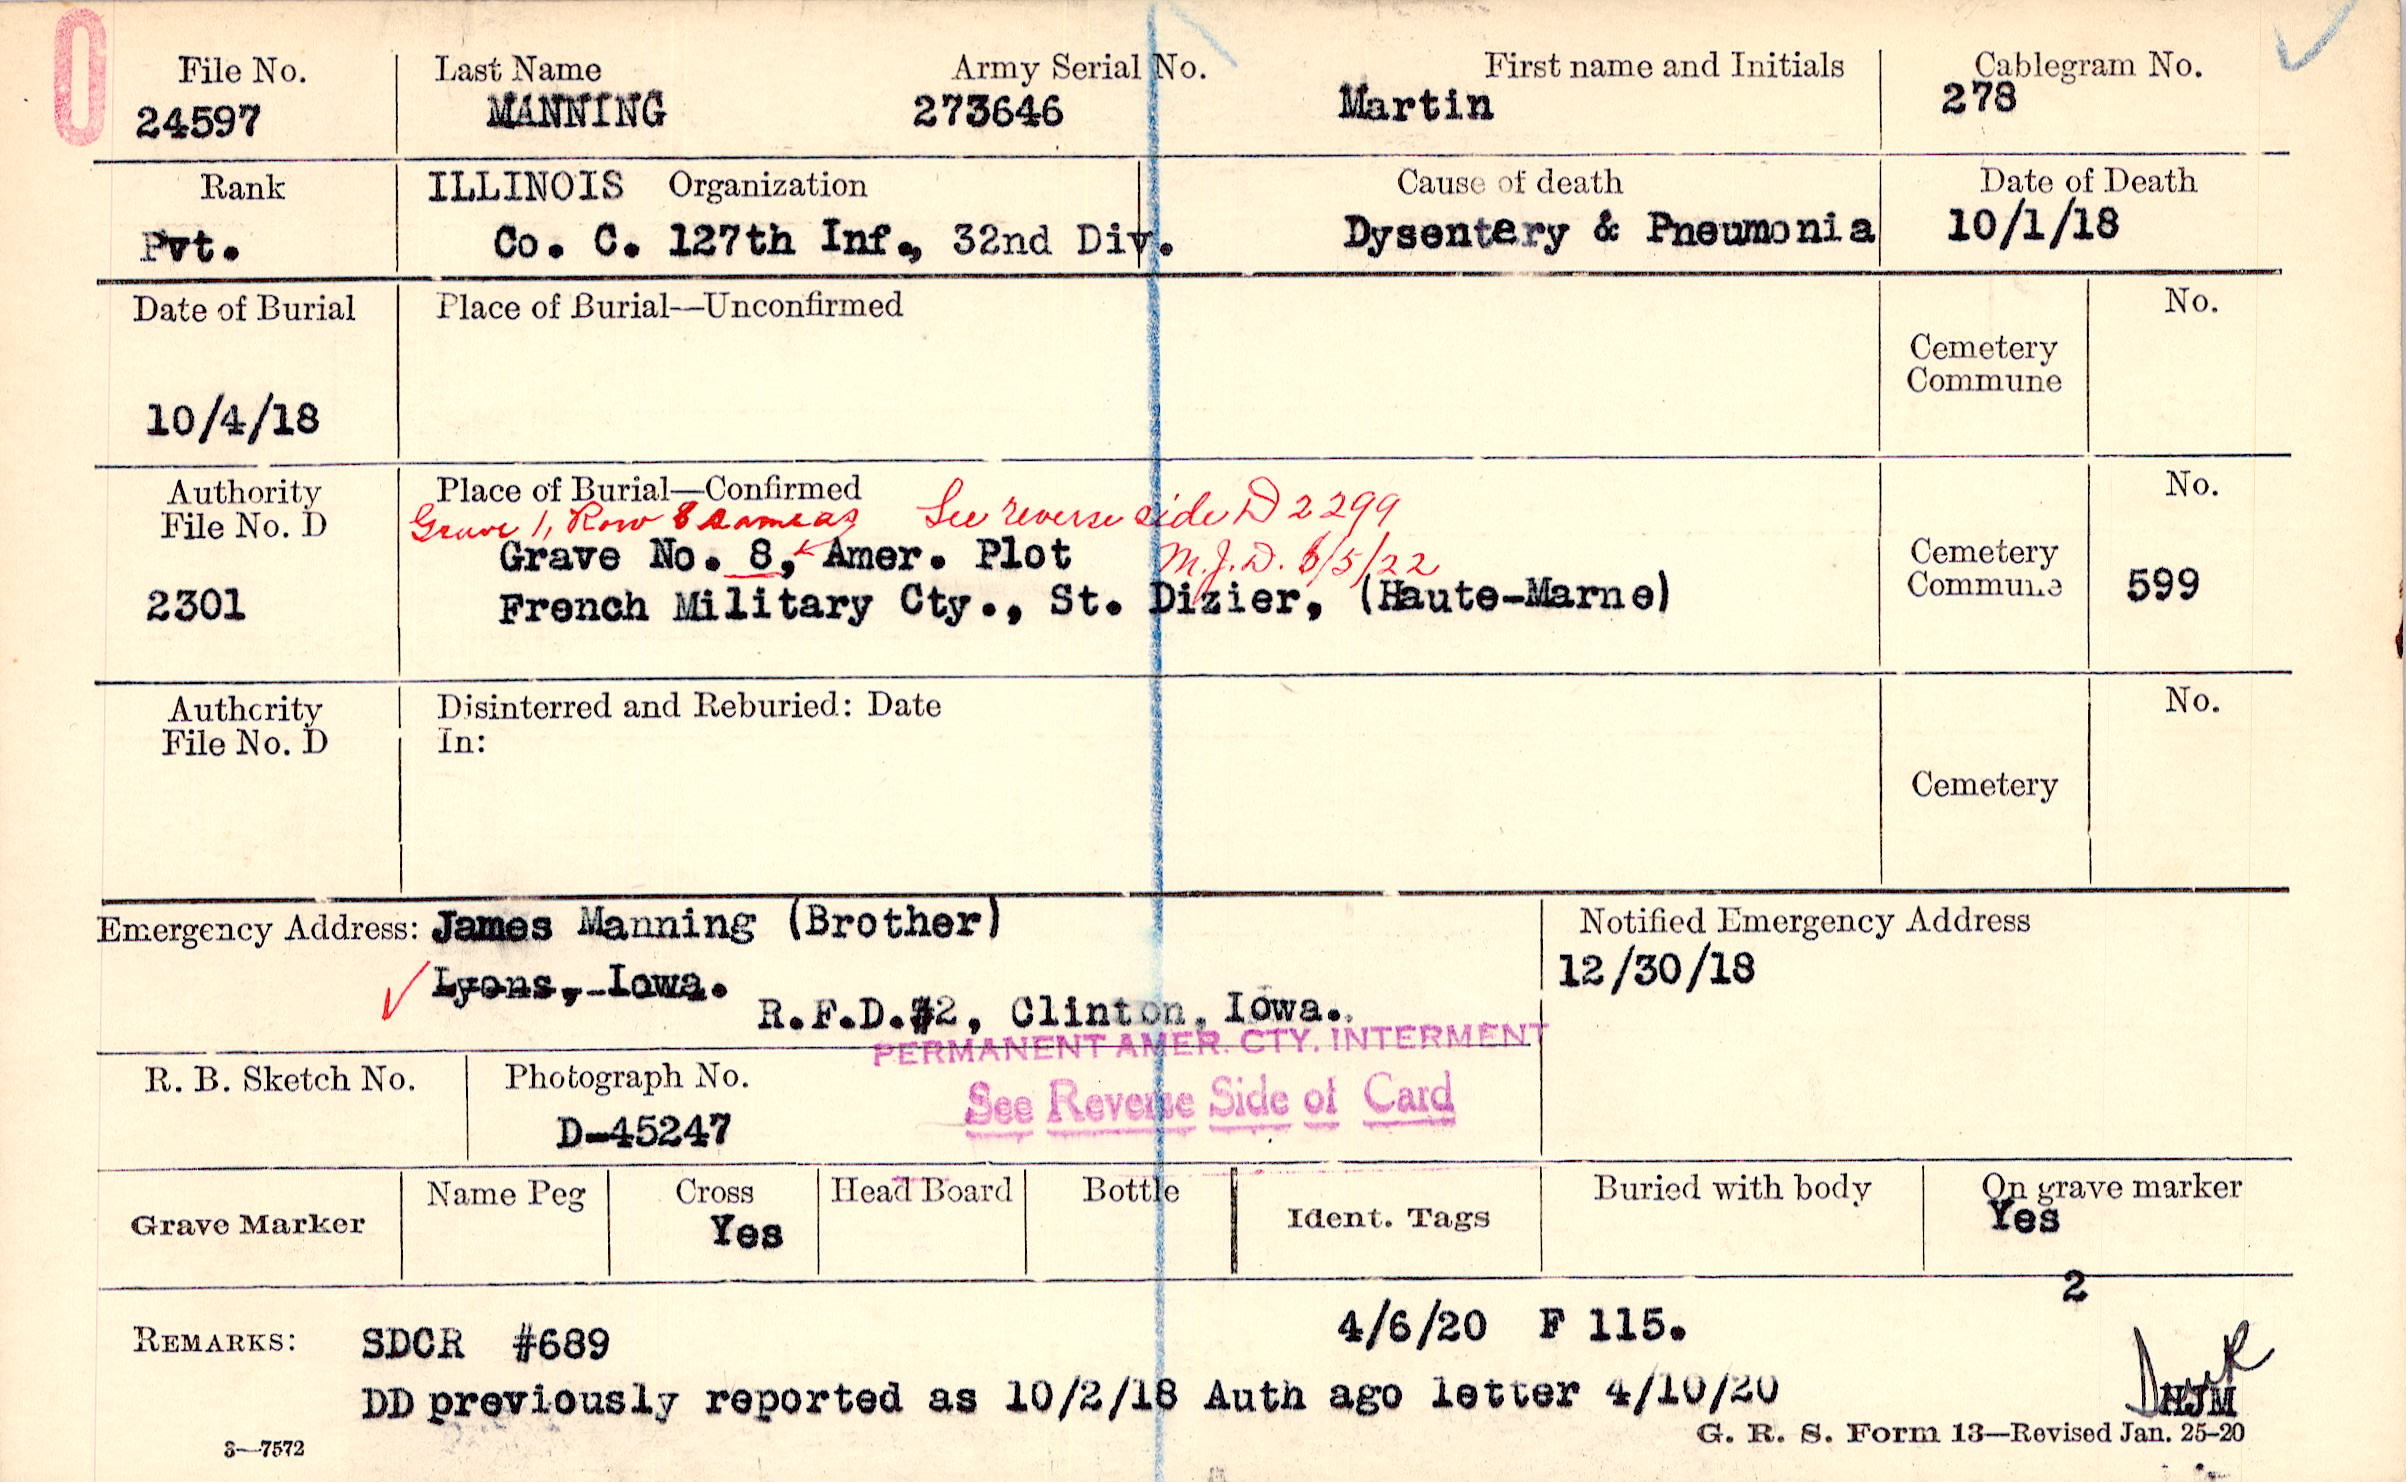 O
File No. Last Name Army Serial No. First name and Initials Cablegram No.
24597 MANNING 273646 Martin 278
Rank ILLINOIS Organization Cause of death Date of Death
Pvt. Co. C. 127th Inf., 32nd Div. Dysentery & Pneumonia 10/1/18
Date of Burial Place of Burial—Unconfirmed No.
Cemetery
Commune
10/4/18
Authority Place of Burial—Confirmed No.
File No. D Grave 1, Row 8 same as See reverse side D 2299
Grave No. 8, Amer. Plot M.J.D. 6/5/22 Cemetery
2301 French Military Cty., St. Dizier, (Haute-Marne) Commune 599
Authority Disinterred and Reburied: Date No.
File No. D In:
Cemetery
Emergency Address: James Manning (Brother) Notified Emergency Address
Lyons, Iowa. 12/30/18
R.F.D.#2, Clinton, Iowa.
PERMANENT AMER. CTY. INTERMENT
R. B. Sketch No. Photograph No. See Reverse Side of Card
D-45247
Grave Marker Name Peg Cross Head Board Bottle Ident. Tags Buried with body On grave marker
Yes Yes
2
REMARKS: SDCR #689 4/6/20 F 115.
DD previously reported as 10/2/18 Auth ago letter 4/10/20 HJM
3—7572 G. R. S. Form 13—Revised Jan. 25-20